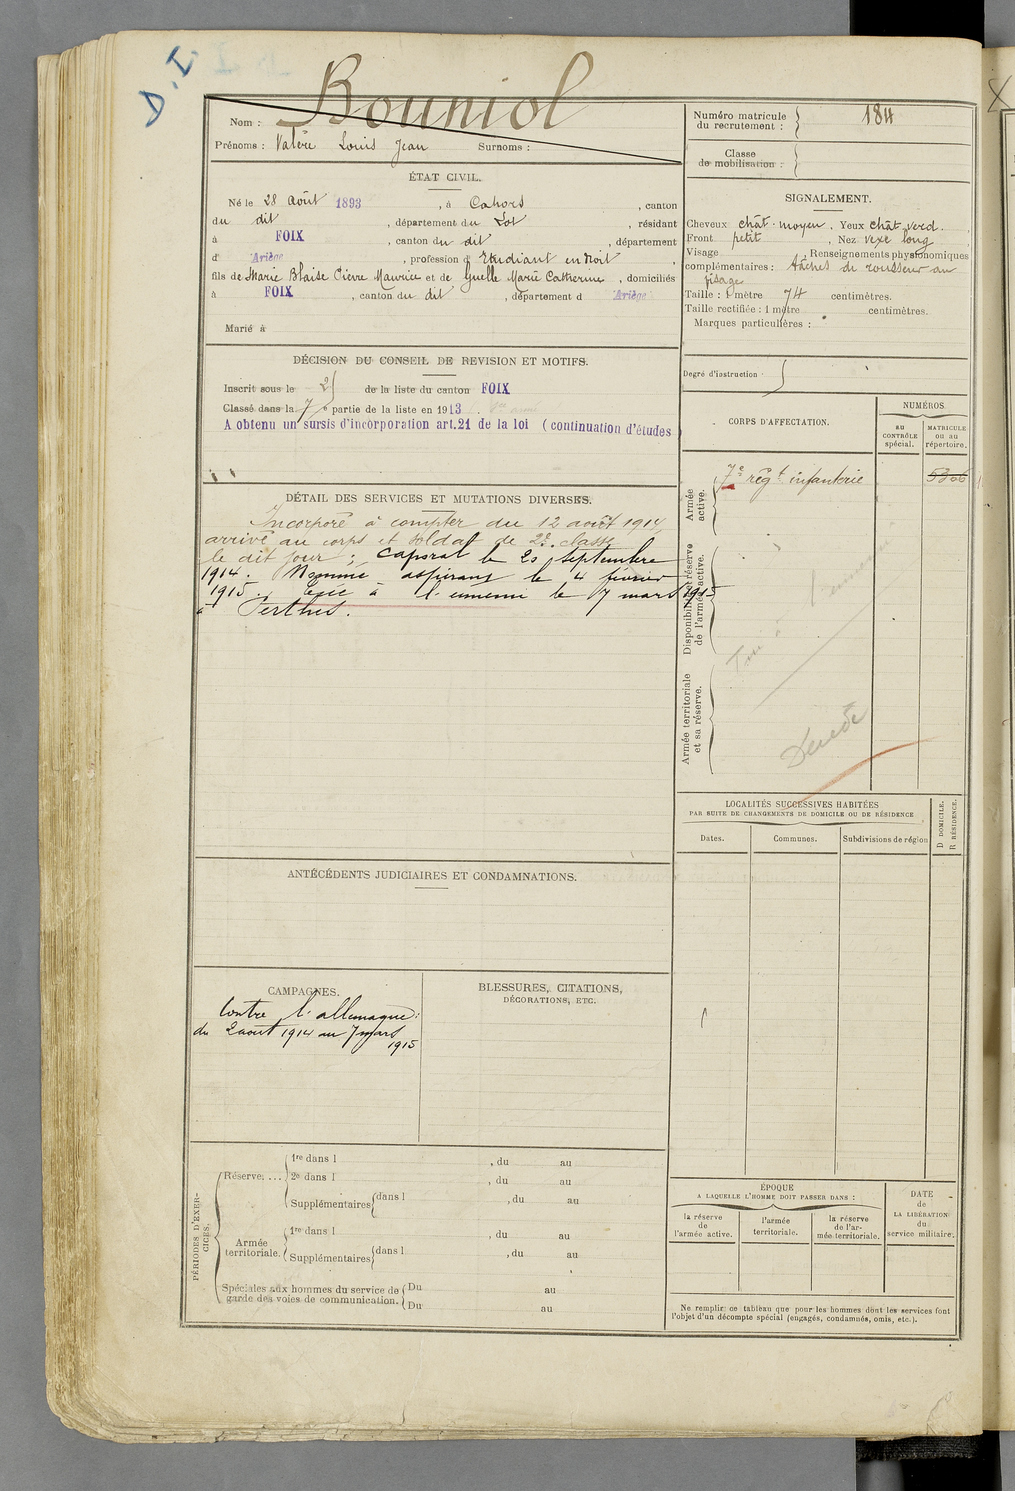 D.I.
Bouniol
Nom :
Prénoms : Valère Louis Jean Surnoms :
ÉTAT CIVIL.
Né le 28 Août 1893, à Cahors, canton
du dit, département du Lot, résidant
à FOIX, canton du dit, département
d' Ariège, profession d' Etudiant en droit,
fils de Marie Blaise Pierre Maurice et de Marie Catherine, domiciliés
à FOIX, canton du dit, département d Ariège
Marié à
DÉCISION DU CONSEIL DE REVISION ET MOTIFS.
Inscrit sous le 25 de la liste du canton FOIX
Classé dans la 7e partie de la liste en 1913.
A obtenu un sursis d'incorporation art.21 de la loi (continuation d'études)
DÉTAIL DES SERVICES ET MUTATIONS DIVERSES.
Incorporé à compter du 12 août 1914,
arrivé au corps et soldat de 2e classe
le dit jour ; caporal le 20 septembre
1914. Nommé aspirant le 4 février
1915. Tué à l'ennemi le 7 mars 1915
à Perthes.
ANTÉCÉDENTS JUDICIAIRES ET CONDAMNATIONS.
CAMPAGNES.
Contre l'allemagne :
du 2 août 1914 au 7 mars
1915
BLESSURES, CITATIONS,
DÉCORATIONS, ETC.
PÉRIODES D'EXERCICES.
Réserve. ...
1re dans l , du au
2e dans l , du au
Supplémentaires dans l , du au
Armée
territoriale.
1re dans l , du au
Supplémentaires dans l , du au
Spéciales aux hommes du service de
garde des voies de communication.
Du au
Du au
Numéro matricule
du recrutement : 184
Classe
de mobilisation :
SIGNALEMENT.
Cheveux chât. moyen. Yeux chât. verd.
Front petit, Nez vexe long
Visage , Renseignements physionomiques
complémentaires : tâches de rousseur au
visage
Taille : 1 mètre 74 centimètres.
Taille rectifiée : 1 mètre centimètres.
Marques particulières :
Degré d'instruction
CORPS D'AFFECTATION.
NUMÉROS
au
CONTRÔLE
spécial.
MATRICULE
ou au
répertoire.
Armée
active.
7e régt infanterie 5306
Disponibilité et réserve
de l'armée active.
Tué à l'ennemi
Armée territoriale
et sa réserve.
Décédé
LOCALITÉS SUCCESSIVES HABITÉES
PAR SUITE DE CHANGEMENTS DE DOMICILE OU DE RÉSIDENCE
Dates. Communes. Subdivisions de région
D DOMICILE.
R RÉSIDENCE.
ÉPOQUE
A LAQUELLE L'HOMME DOIT PASSER DANS :
la réserve
de
l'armée active.
l'armée
territoriale.
la réserve
de l'ar-
mée territoriale.
DATE
de
LA LIBÉRATION
du
service militaire.
Ne remplir ce tableau que pour les hommes dont les services font
l'objet d'un décompte spécial (engagés, condamnés, omis, etc.).